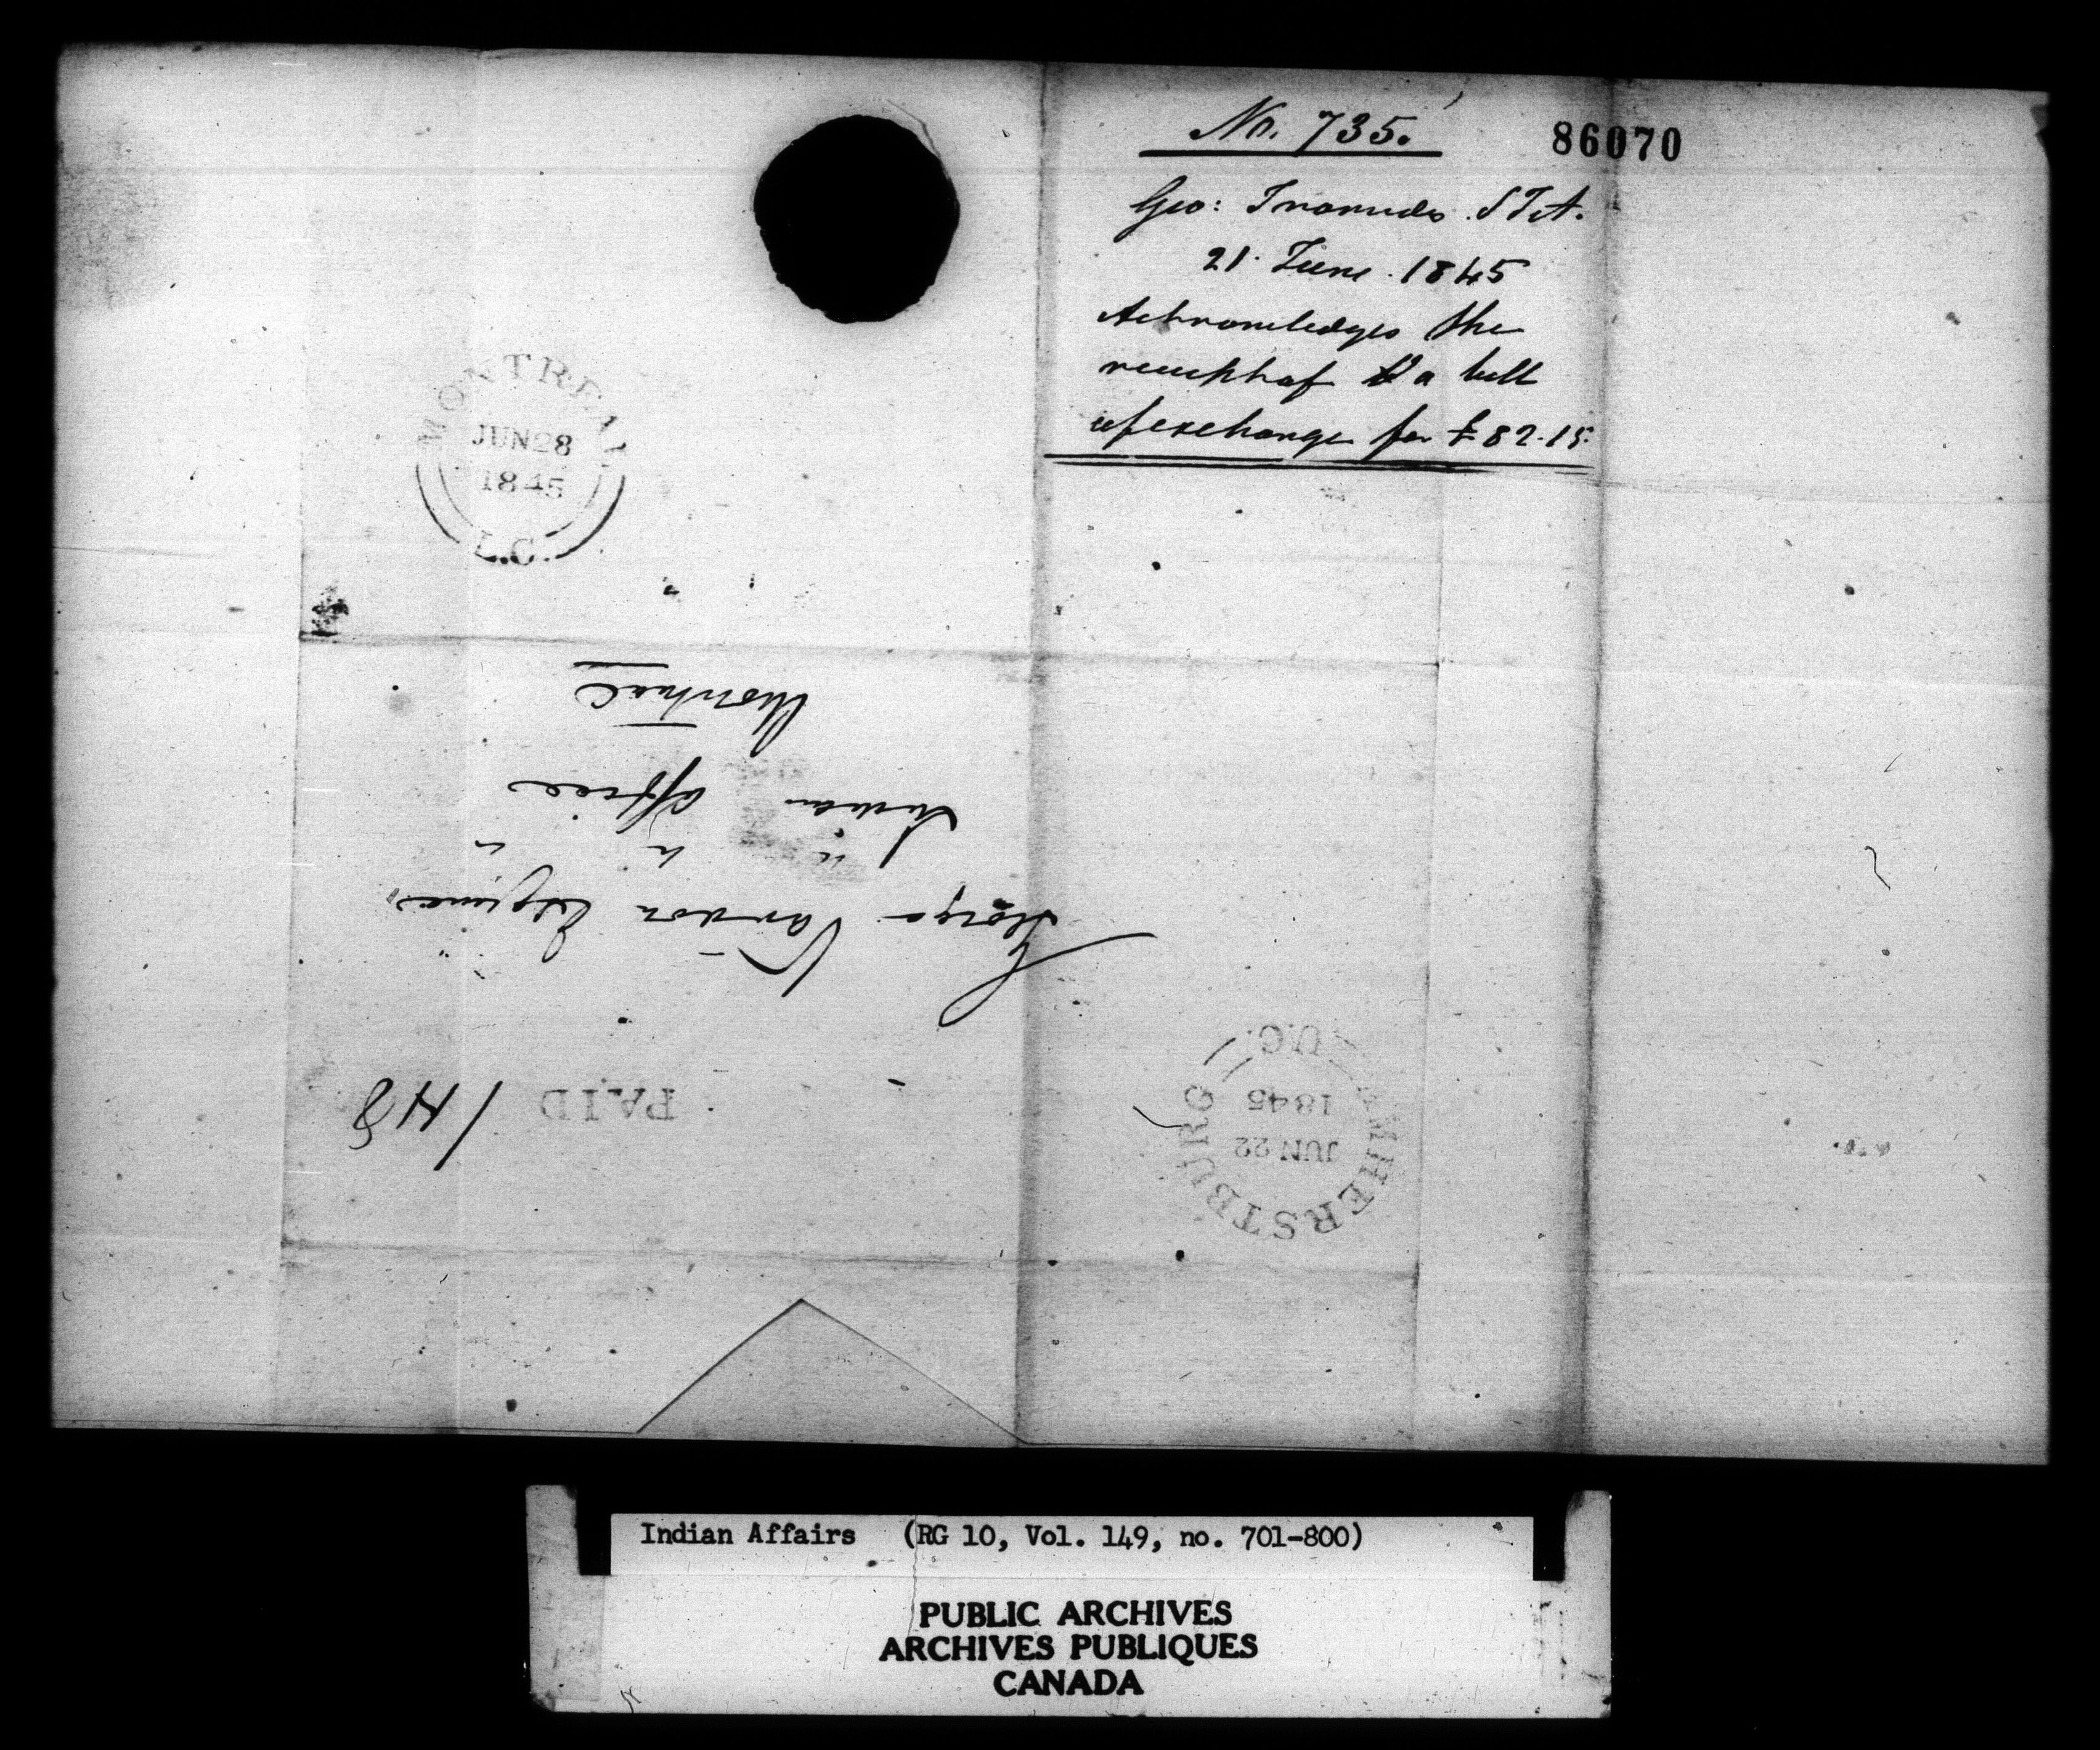 No. 735.
86070
Geo: Ironside S I A.
21. June. 1845
Acknowledges the
receipt of a bill
of exchange for £82.15.
MONTREAL
JUN 28
1845
L.C.
George Vardon Esquire
" " "
Indian Office
Montreal
PAID
AMHERSTBURG
JUN 22
1845
U.C.
Indian Affairs (RG 10, Vol. 149, no. 701-800)
PUBLIC ARCHIVES
ARCHIVES PUBLIQUES
CANADA